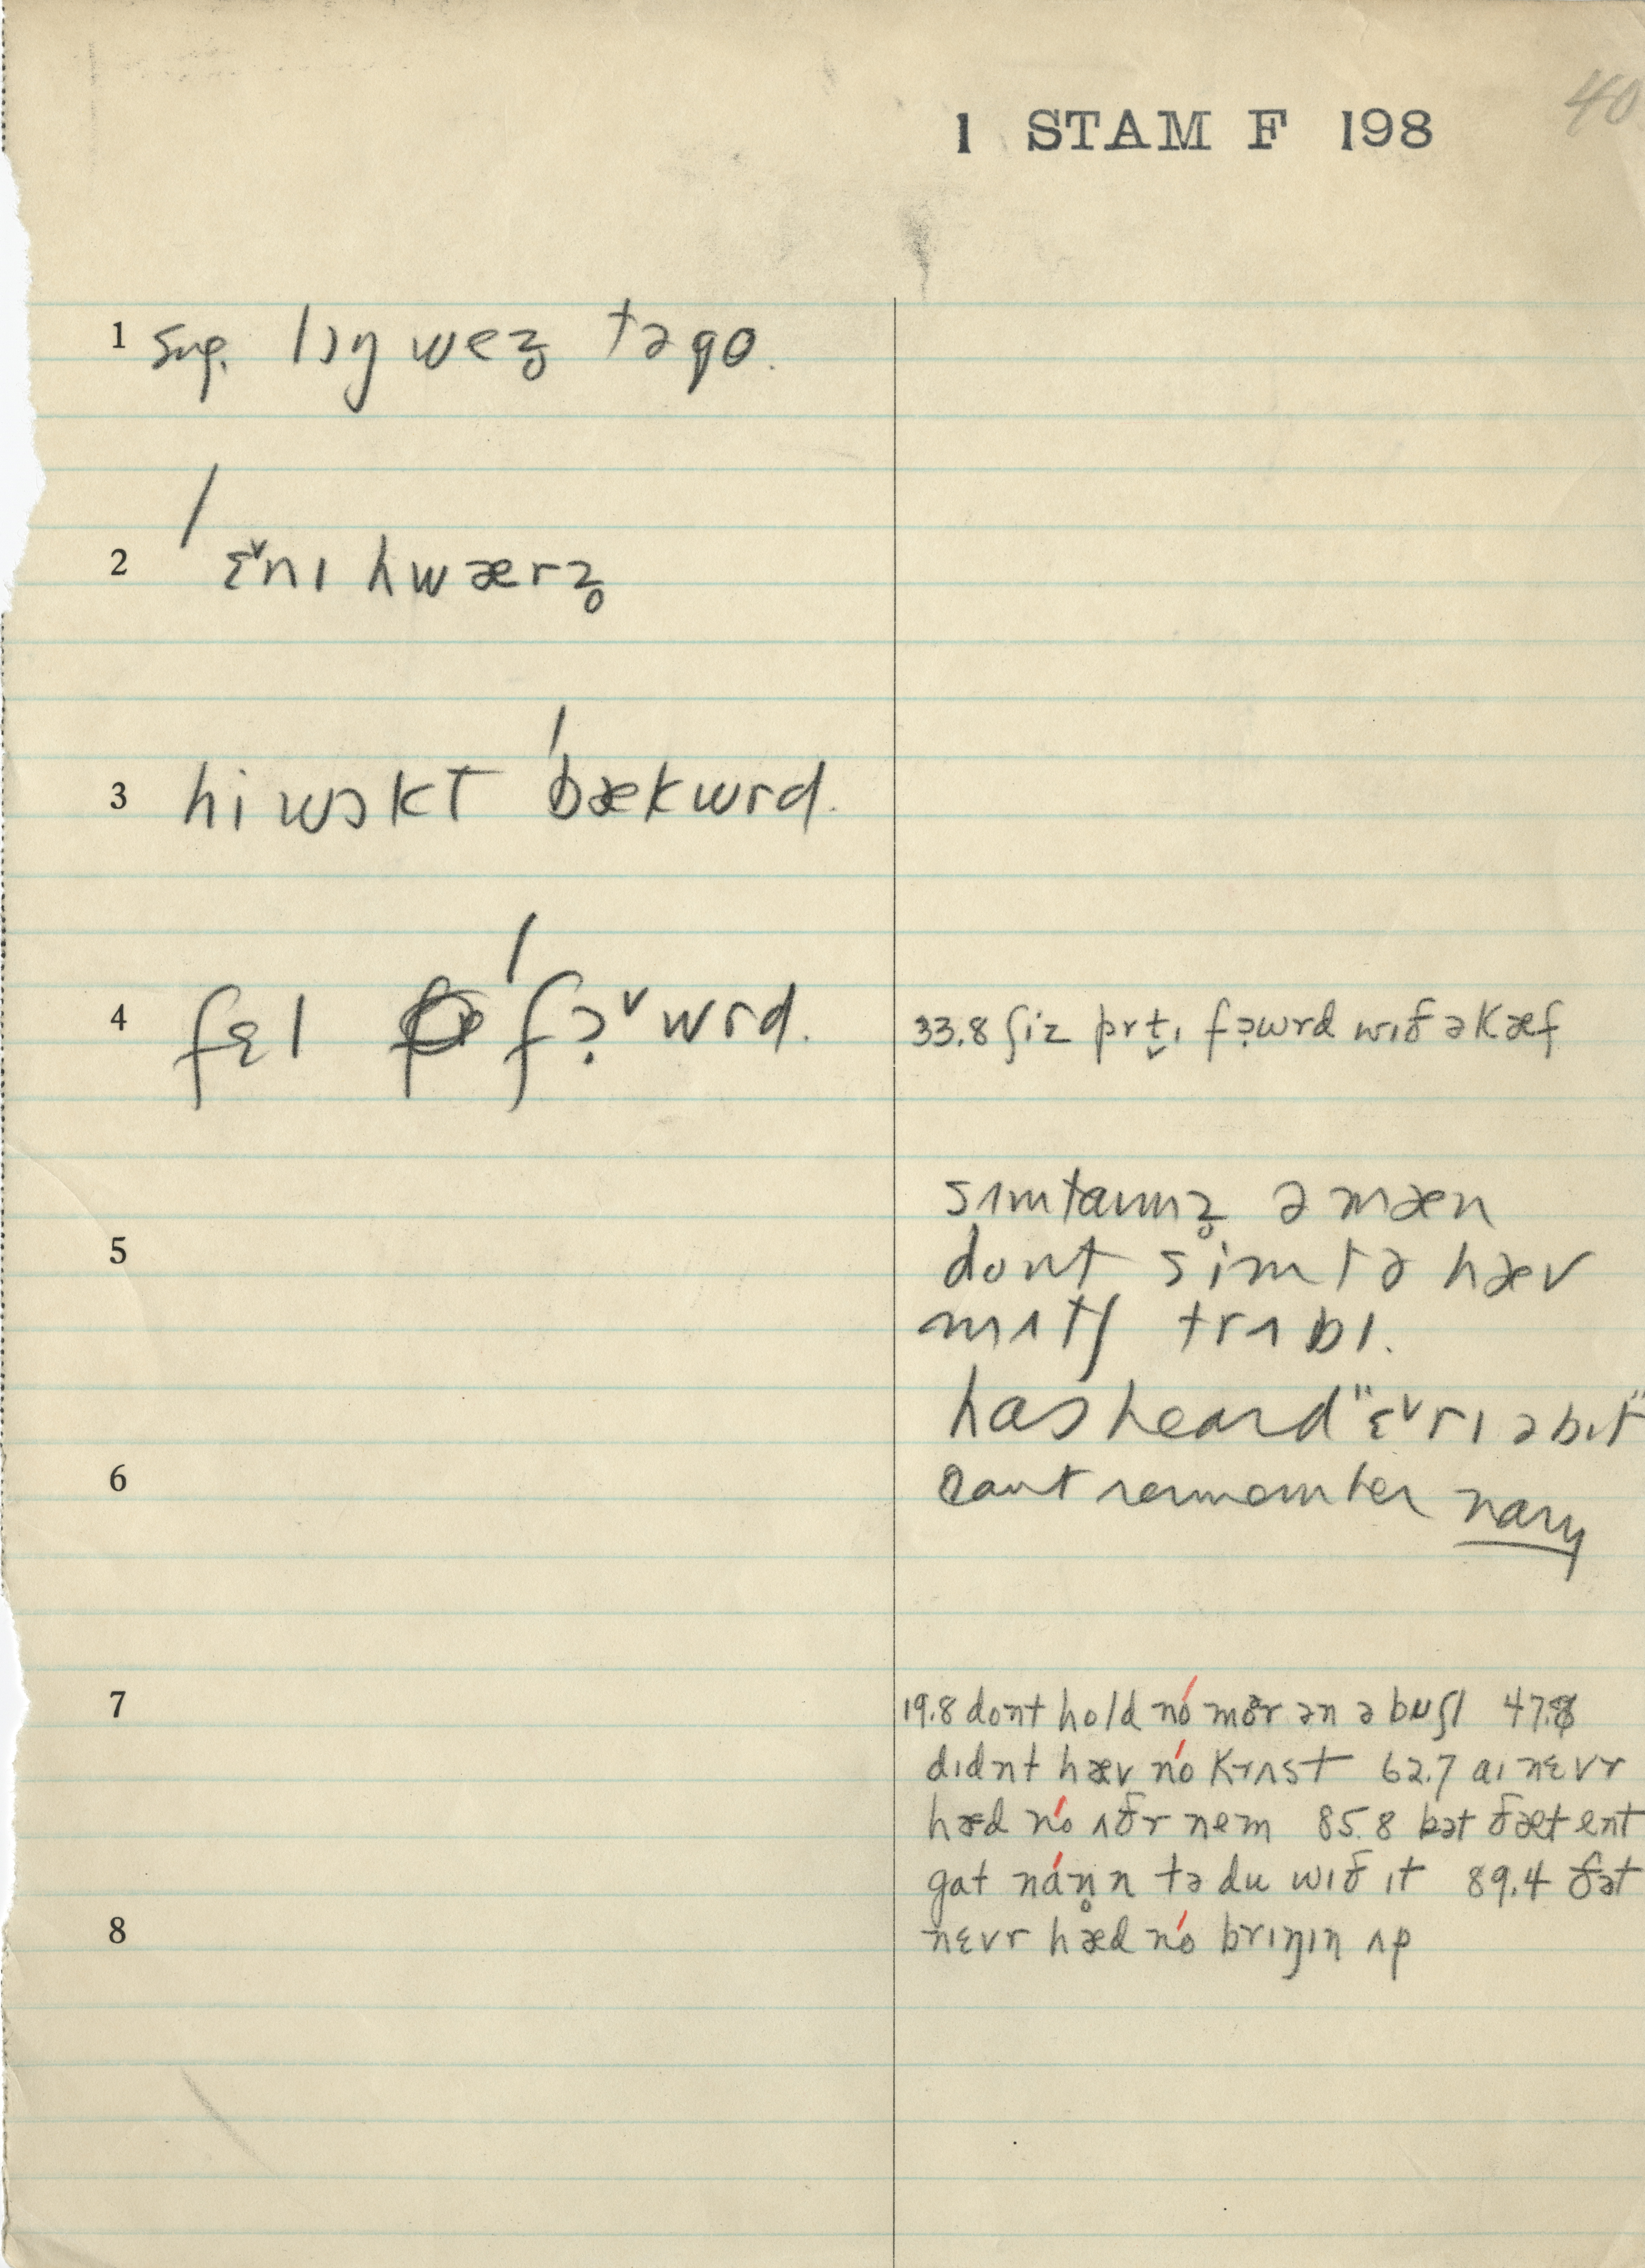 40
1 STAM F 198
1 sug. lɔŋ wez̥ tə go.
2 ˈɛ˅nɪ hwærz̥
3 hi wɔkt ˈbækwrd.
4 fɛl ˈfɔ̣˅wrd.
33.8 ʃiz prt̬ɪ fɔ̣wrd wɪð ə kæf
sʌmtaɪmz̥ ə mæn
5
dont sim tə hæv
mʌtʃ trʌbl.
has heard "ɛ˅rɪ ə bɪt"
6
cant remember nary
7
19.8 dont hold nó mər ən ə buʃl 47.8
dɪdnt hæv nó krʌst 62.7 aɪ nɛvr
hæd nó ʌðr nem 85.8 bət ðæt ent
gat nán̥n tə du wɪð ɪt 89.4 ðət
8
nɛvr hæd nó brɪŋɪn ʌp